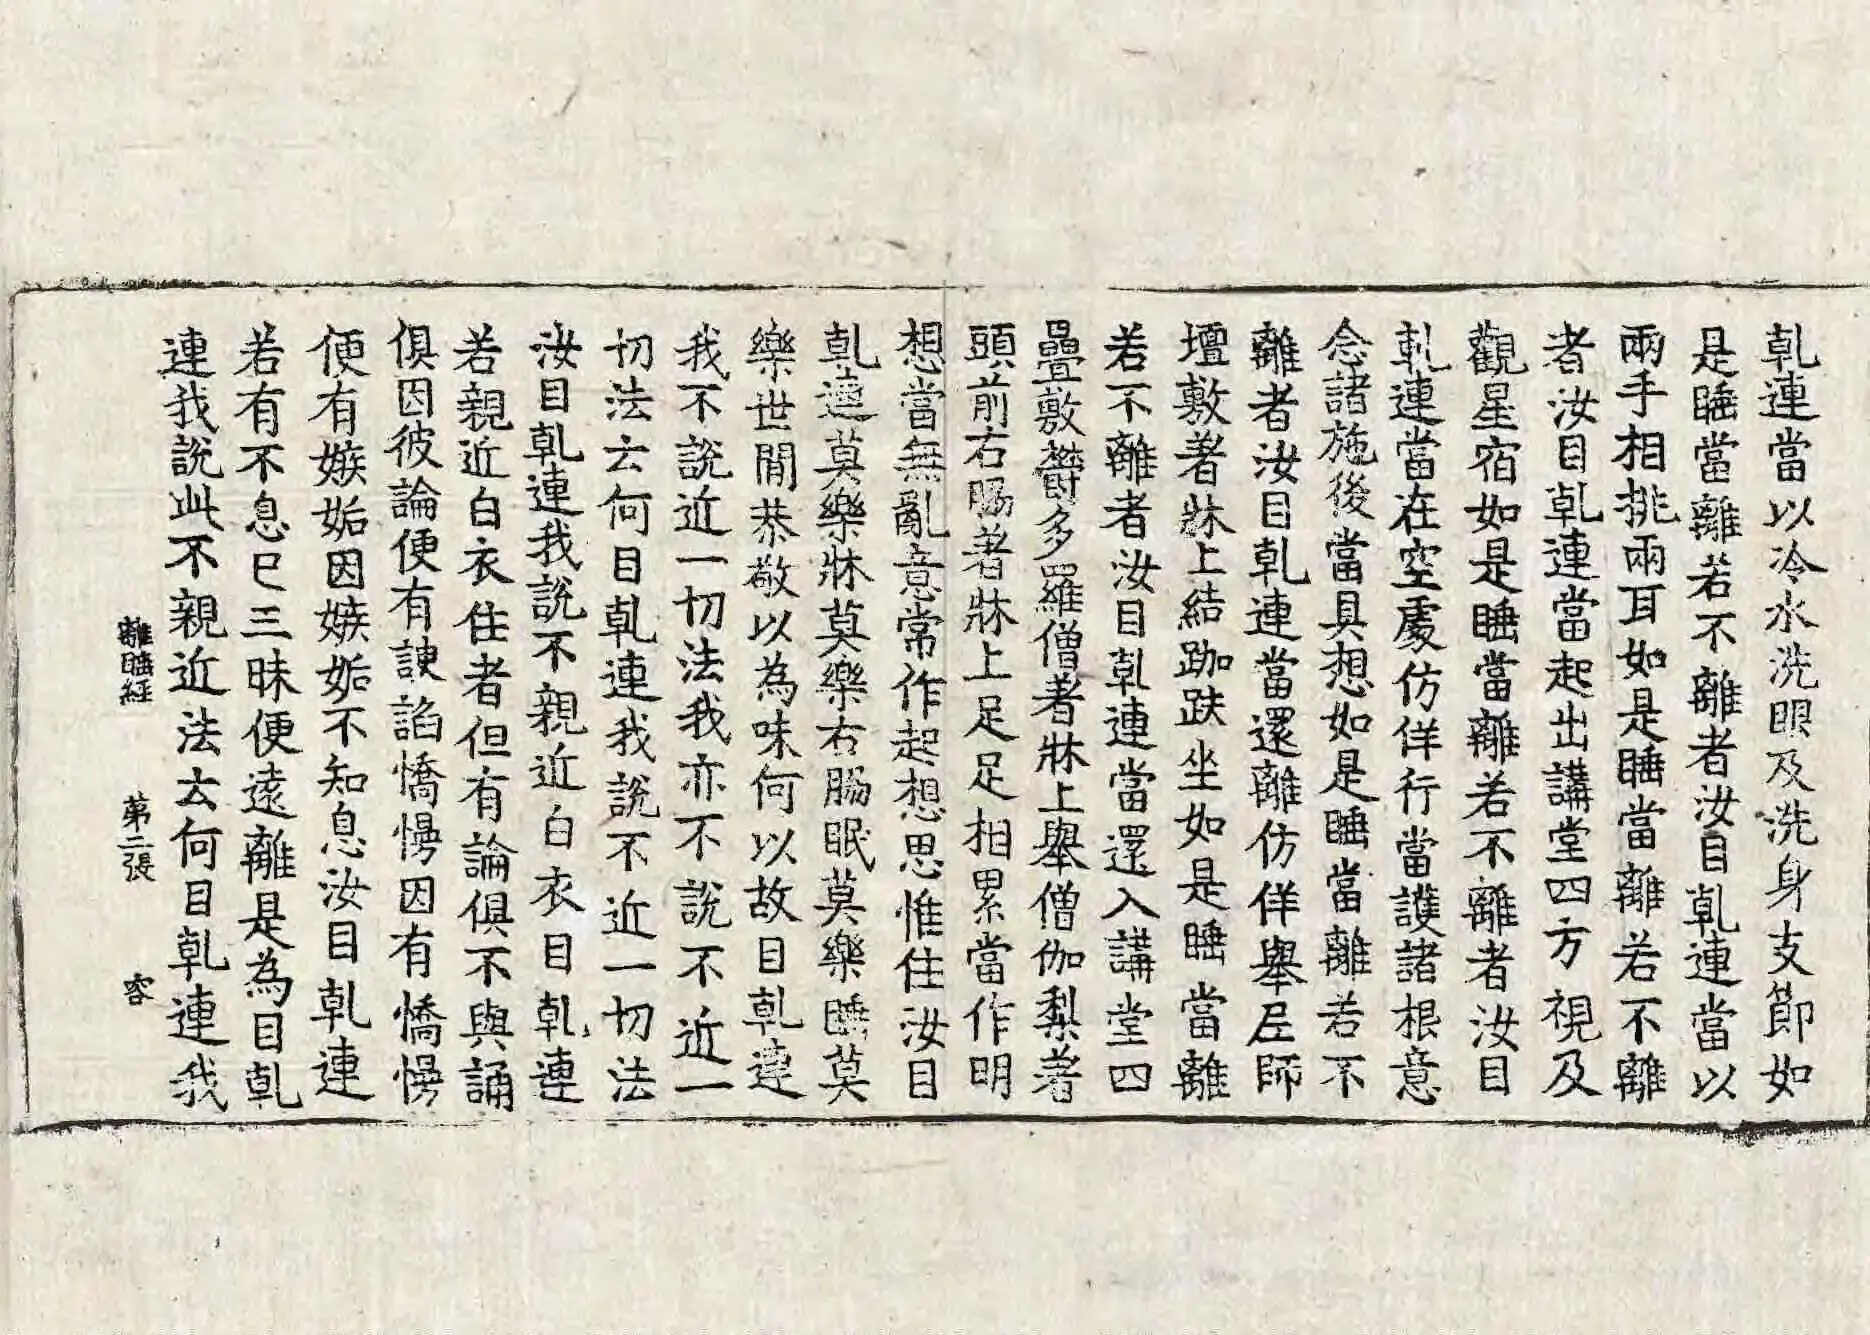 乹連當以冷水洗眼及洗身支節如
是睡當離若不離者汝目乹連當以
兩手相挑兩耳如是睡當離若不離
者汝目乹連當起出講堂四方視及
觀星宿如是睡當離若不離者汝目
乹連當在空處仿佯行當護諸根意
念諸施後當具想如是睡當離若不
離者汝目乹連當還離仿佯舉𡰱師
壇敷著牀上結跏趺坐如是睡當離
若不離者汝目乹連當還入講堂四
疊敷鬱多羅僧著牀上舉僧伽梨著
頭前右脇著牀上足足相累當作明
想當無亂意常作起想思惟住汝目
乹連莫樂牀莫樂右脇眠莫樂睡莫
樂世間恭敬以為味何以故目乹連
我不說近一切法我亦不說不近一
切法云何目乹連我說不近一切法
汝目乹連我說不親近白衣目乹連
若親近白衣住者但有論俱不與誦
俱因彼論便有諛諂憍慢因有憍慢
便有嫉妬因嫉妬不知息汝目乹連
若有不息已三昧便遠離是為目乹
連我說此不親近法云何目乹連我
離睡經 第二張 容